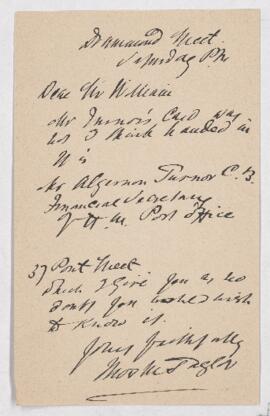 Drummond Street
Saturday P.M.
Dear Sir William
Mr Turnor's Card was
not I think handed in
It is
Mr Algernon Turnor C.B.
Financial Secretary
of H.M. Post Office
37 Pont Street
which I give you as no
doubt you would wish
to know it.
Yours faithfully
Taylor